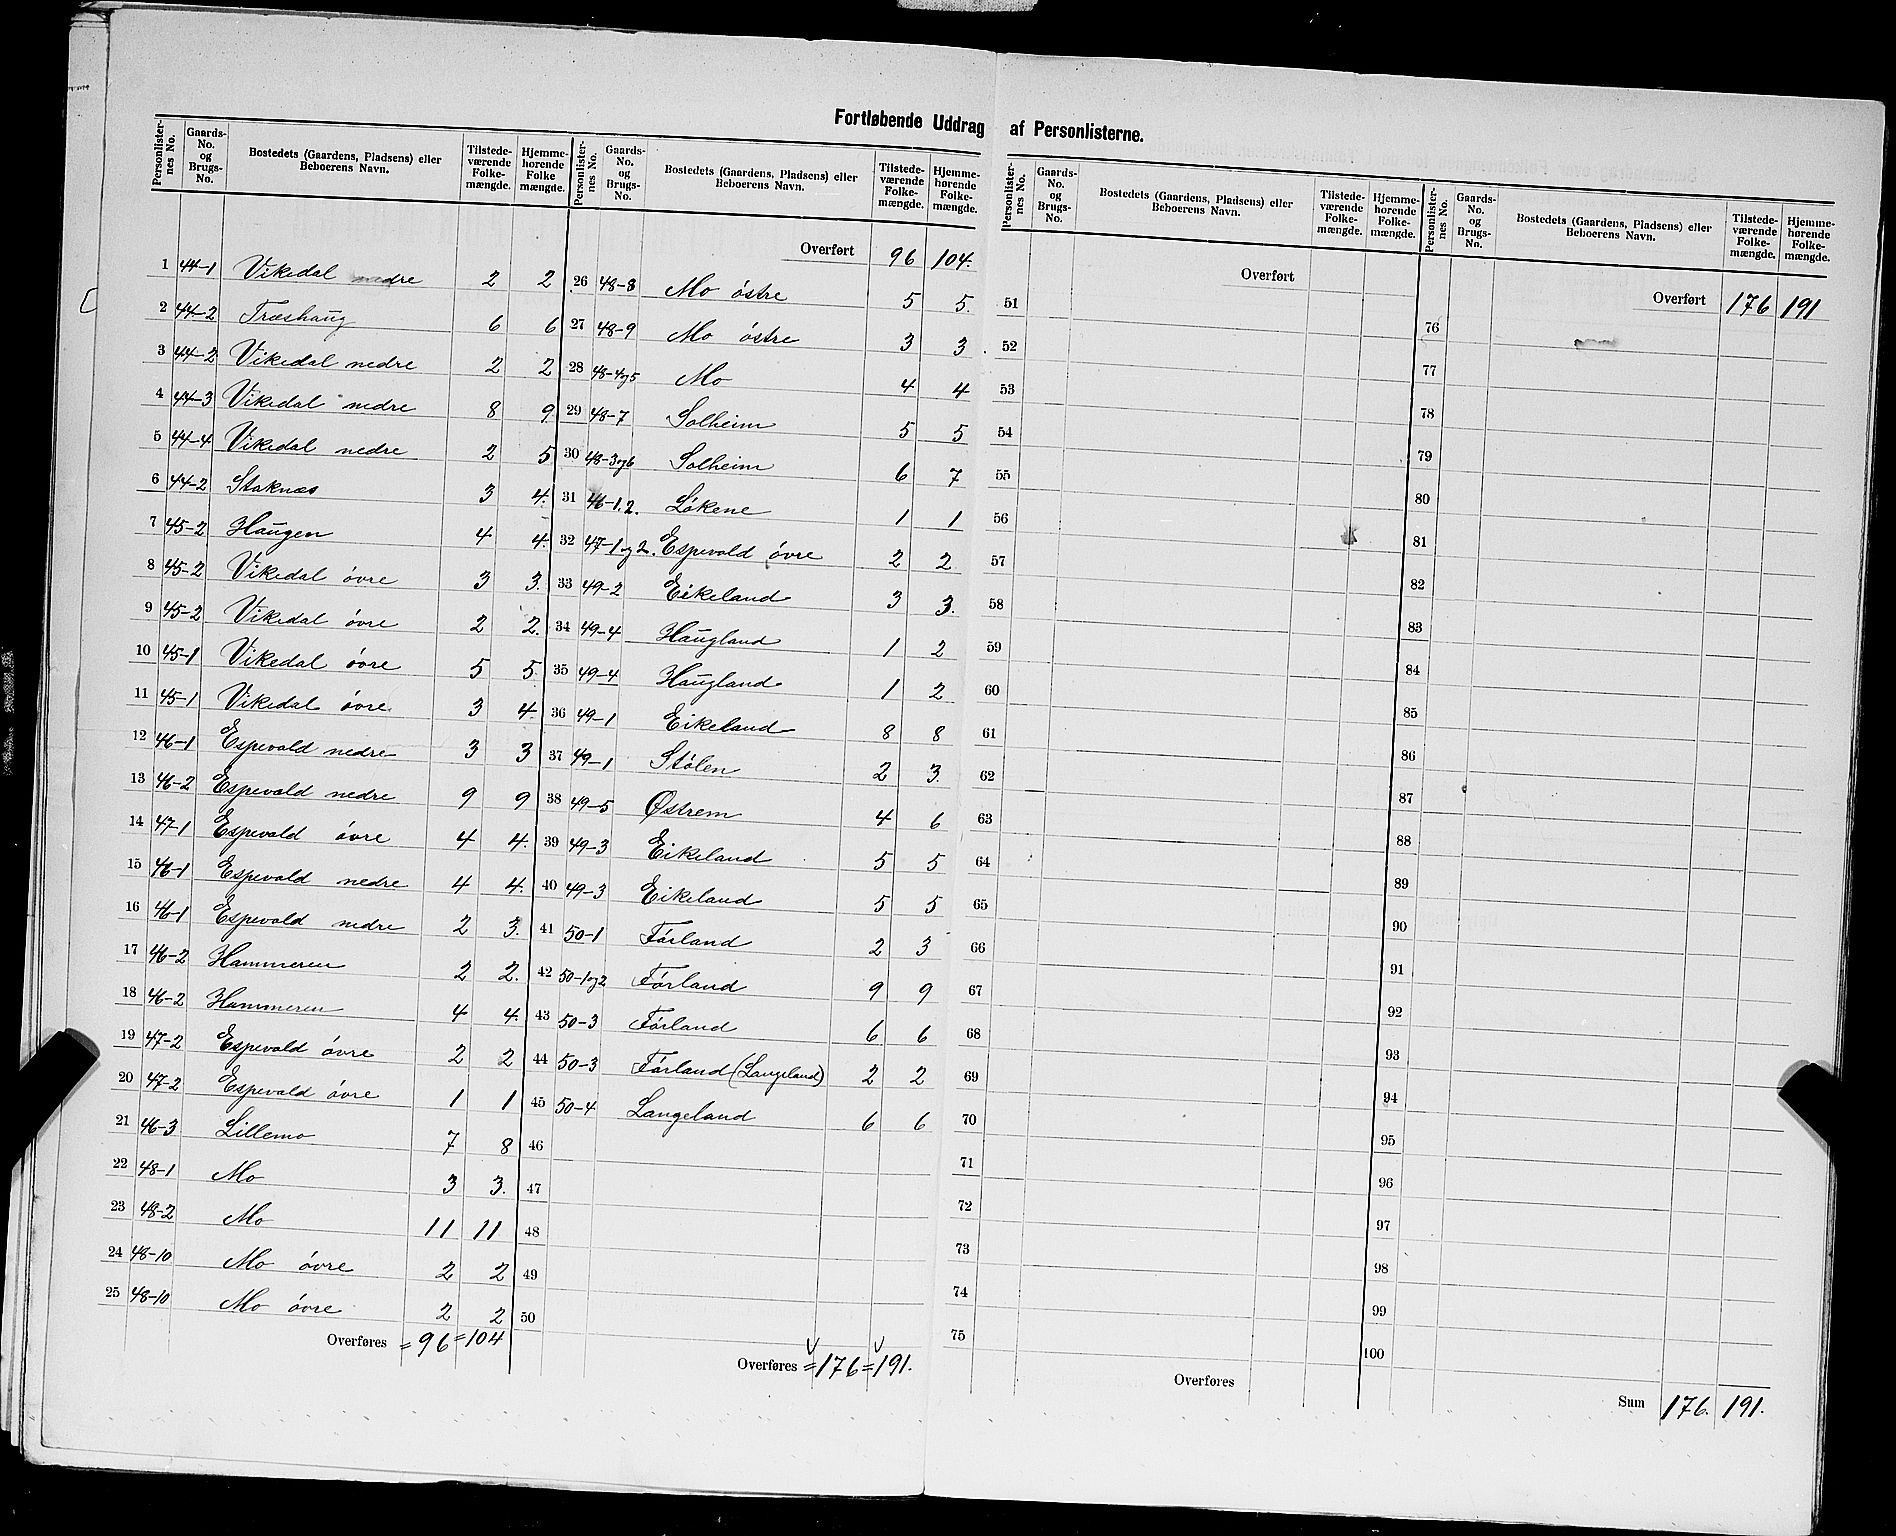 Fortløbende Uddrag af Personlisterne.
Personlister-nes No. | Gaards-No. og Brugs-No. | Bostedets (Gaardens, Pladsens) eller Beboerens Navn. | Tilstede-værende Folke-mængde. | Hjemme-hørende Folke mængde.
1 44-1 Vikedal nedre 2 2
2 44-2 Træshaug 6 6
3 44-2 Vikedal nedre 2 2
4 44-3 Vikedal nedre 8 9
5 44-4 Vikedal nedre 2 5
6 44-2 Staknæs 3 4.
7 45-2 Haugen 4 4.
8 45-2 Vikedal øvre 3 3.
9 45-2 Vikedal øvre 2 2.
10 45-1 Vikedal øvre 5 5.
11 45-1 Vikedal øvre 3 4.
12 46-1 Espevold nedre 3 3
13 46-2 Espevold nedre 9 9
14 47-1 Espevold øvre 4 4.
15 46-1 Espevold nedre 4 4.
16 46-1 Espevold nedre 2 3.
17 46-2 Hammeren 2 2.
18 46-2 Hammeren 4 4.
19 47-2 Espevold øvre 2 2
20 47-2 Espevold øvre 1 1
21 46-3 Lillemo 7 8
22 48-1 Mo 3 3.
23 48-2 Mo 11 11
24 48-10 Mo øvre 2 2
25 48-10 Mo øvre 2 2
Overføres = 96 = 104
Personlister-nes No. | Gaards-No. og Brugs-No. | Bostedets (Gaardens, Pladsens) eller Beboerens Navn. | Tilstede-værende Folke-mængde. | Hjemme-hørende Folke-mængde.
Overført 96 104.
26 48-8 Mo østre 5 5.
27 48-9 Mo østre 3 3.
28 48-4og5 Mo 4 4
29 48-7 Solheim 5 5
30 48-3og6 Solheim 6 7
31 46-1.2. Løkene 1 1
32 47-1og2. Espevold øvre 2 2
33 49-2 Eikeland 3 3.
34 49-4 Haugland 1 2
35 49-4 Haugland 1 2
36 49-1 Eikeland 8 8
37 49-1 Stølen 2 3.
38 49-5 Østrem 4 6
39 49-3 Eikeland 5 5
40 49-3 Eikeland 5 5
41 50-1 Førland 2 3
42 50-1og2 Førland 9 9
43 50-3 Førland 6 6
44 50-3 Førland (Langeland) 2 2
45 50-4 Langeland 6 6
46
47
48
49
50
Overføres = 176 = 191.
Personlister-nes No. | Gaards-No. og Brugs-No. | Bostedets (Gaardens, Pladsens) eller Beboerens Navn. | Tilstede-værende Folke-mængde. | Hjemme-hørende Folke-mængde.
Overført
51
52
53
54
55
56
57
58
59
60
61
62
63
64
65
66
67
68
69
70
71
72
73
74
75
Overføres
Personlister-nes No. | Gaards-No. og Brugs-No. | Bostedets (Gaardens, Pladsens) eller Beboerens Navn. | Tilstede-værende Folke-mængde. | Hjemme-hørende Folke-mængde.
Overført 176 191
76
77
78
79
80
81
82
83
84
85
86
87
88
89
90
91
92
93
94
95
96
97
98
99
100
Sum 176. 191.